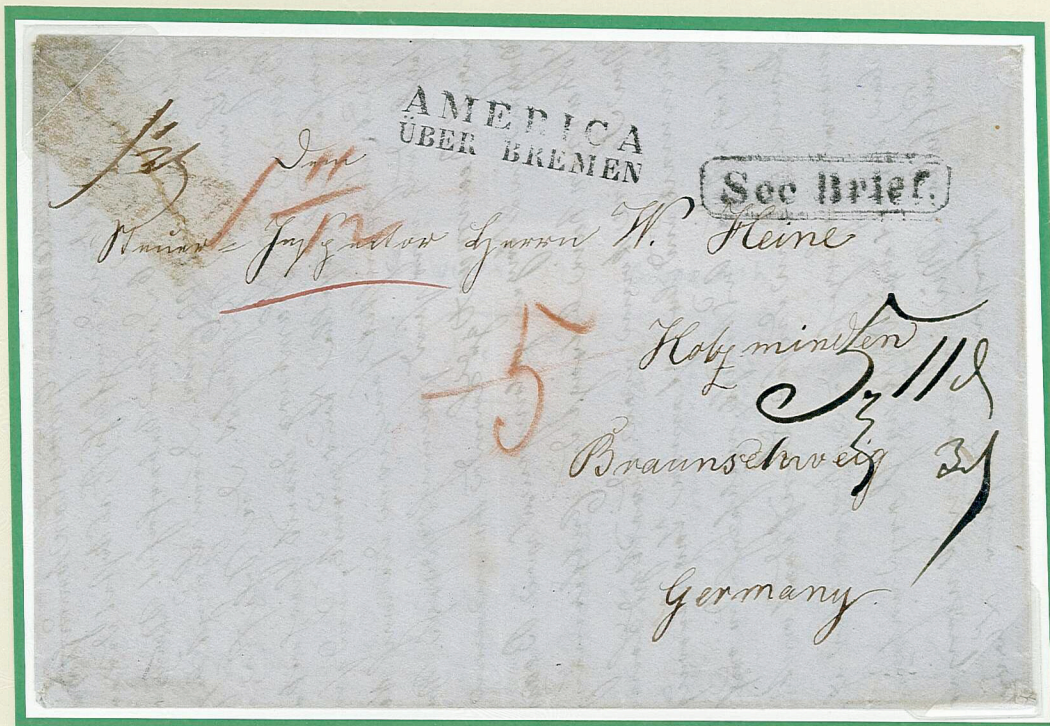 AMERICA
ÜBER BREMEN
See Brief.
Der
Steuer-Inspector Herrn W. Heine
5
Holzminden
5 11
Braunschweig 3
Germany